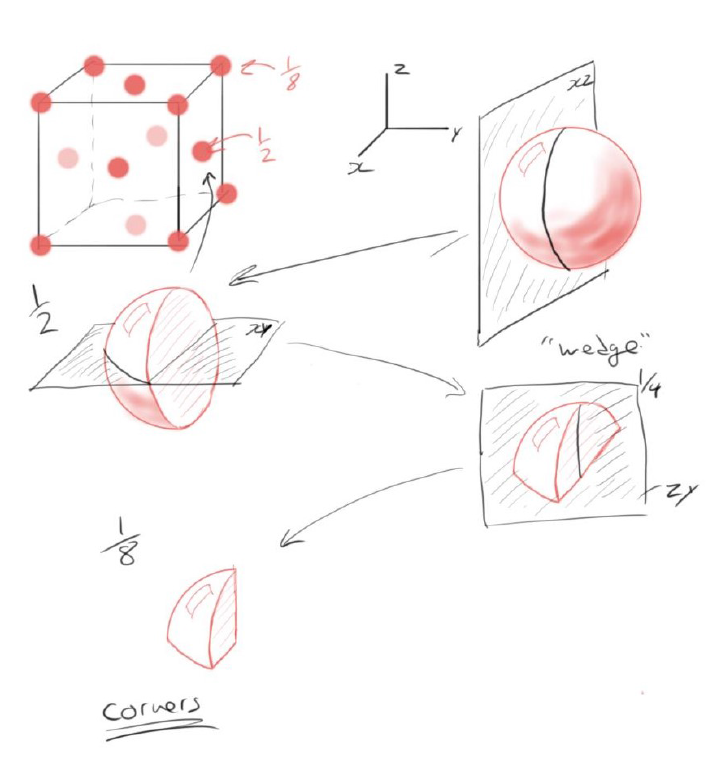 1/8
z
xz
1/2
y
x
1/2
xy
"wedge"
1/4
zy
1/8
Corners